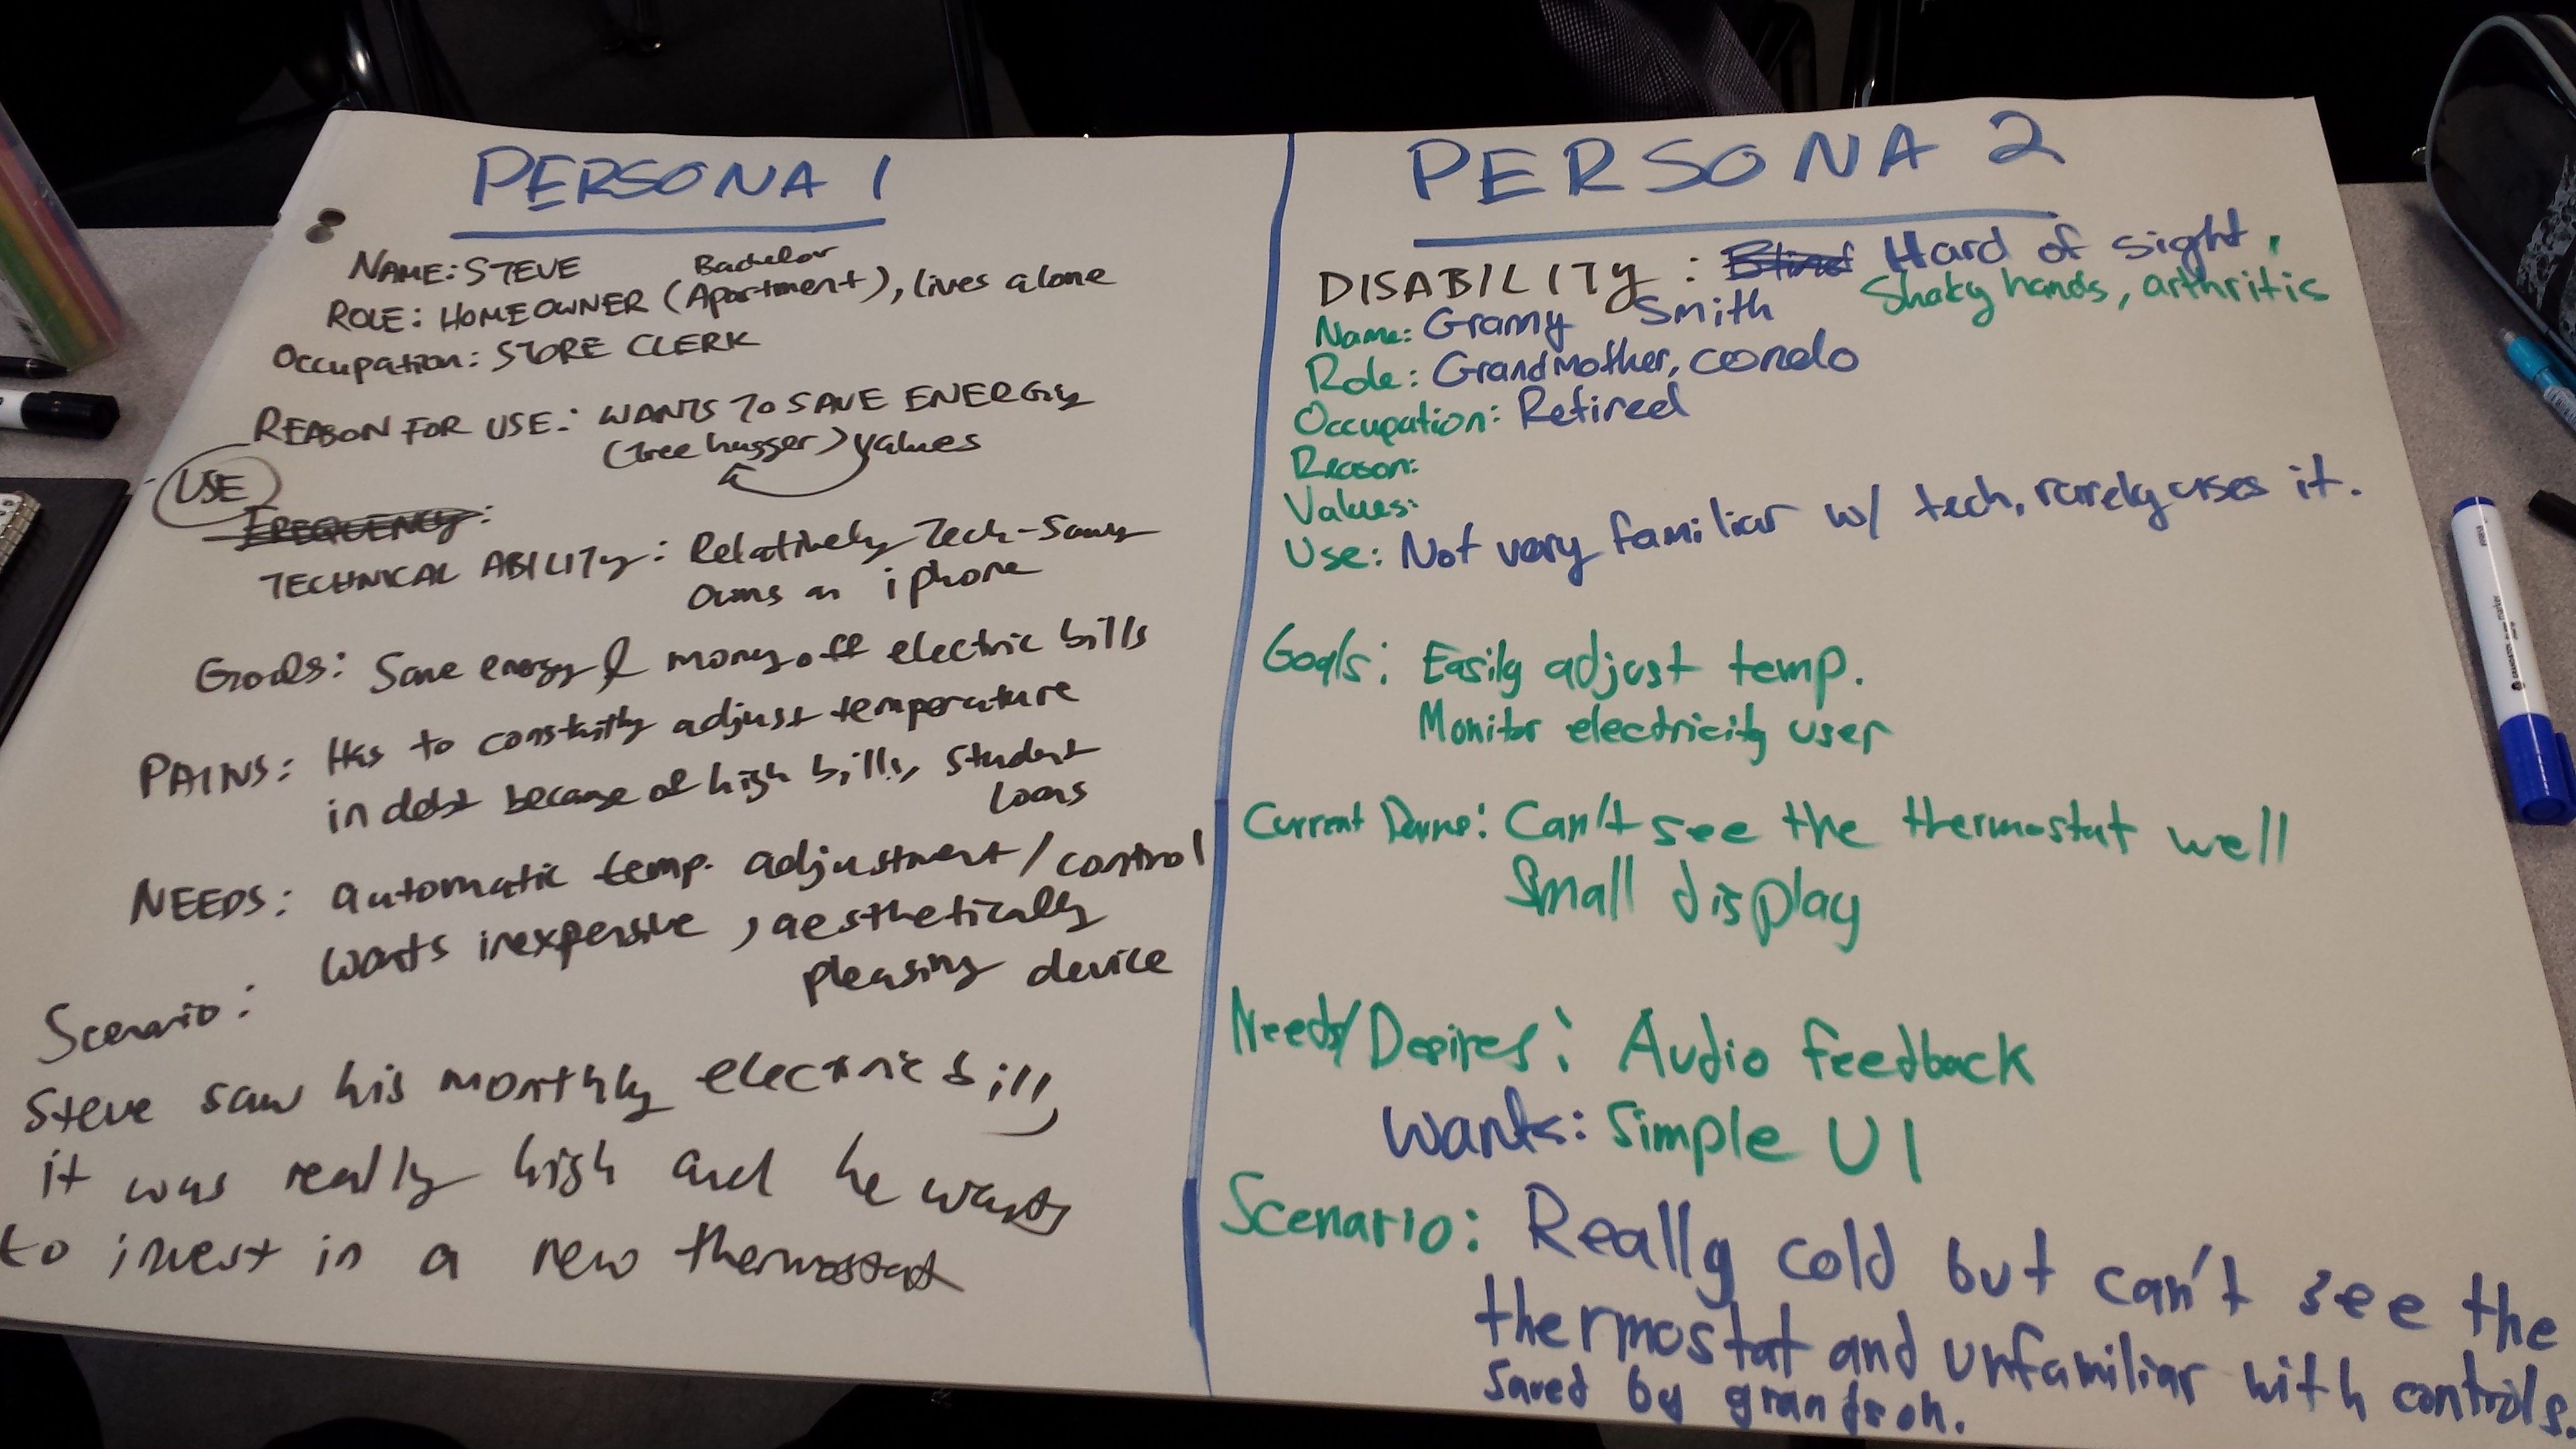 PERSONA 1
NAME: STEVE
Bachelor
ROLE: HOMEOWNER (Apartment), lives alone
Occupation: STORE CLERK
REASON FOR USE: WANTS TO SAVE ENERGY
(Tree hugger) values
USE
FREQUENCY:
TECHNICAL ABILITY: Relatively Tech-Savvy
owns an iphone
Goals: Save energy & money off electric bills
PAINS: Has to constantly adjust temperature
in debt because of high bills, student
loans
NEEDS: automatic temp. adjustment/control
wants inexpensive, aesthetically
pleasing device
Scenario:
Steve saw his monthly electric bill,
it was really high and he wants
to invest in a new thermostat
PERSONA 2
DISABILITY: Blind Hard of sight,
Shaky hands, arthritis
Name: Granny Smith
Role: Grandmother, condo
Occupation: Retired
Reason:
Values:
Use: Not very familiar w/ tech, rarely uses it.
Goals: Easily adjust temp.
Monitor electricity user
Current : Can't see the thermostat well
Small display
Needs/Desires: Audio feedback
wants: Simple UI
Scenario: Really cold but can't see the
thermostat and unfamiliar with controls.
Saved by grandson.